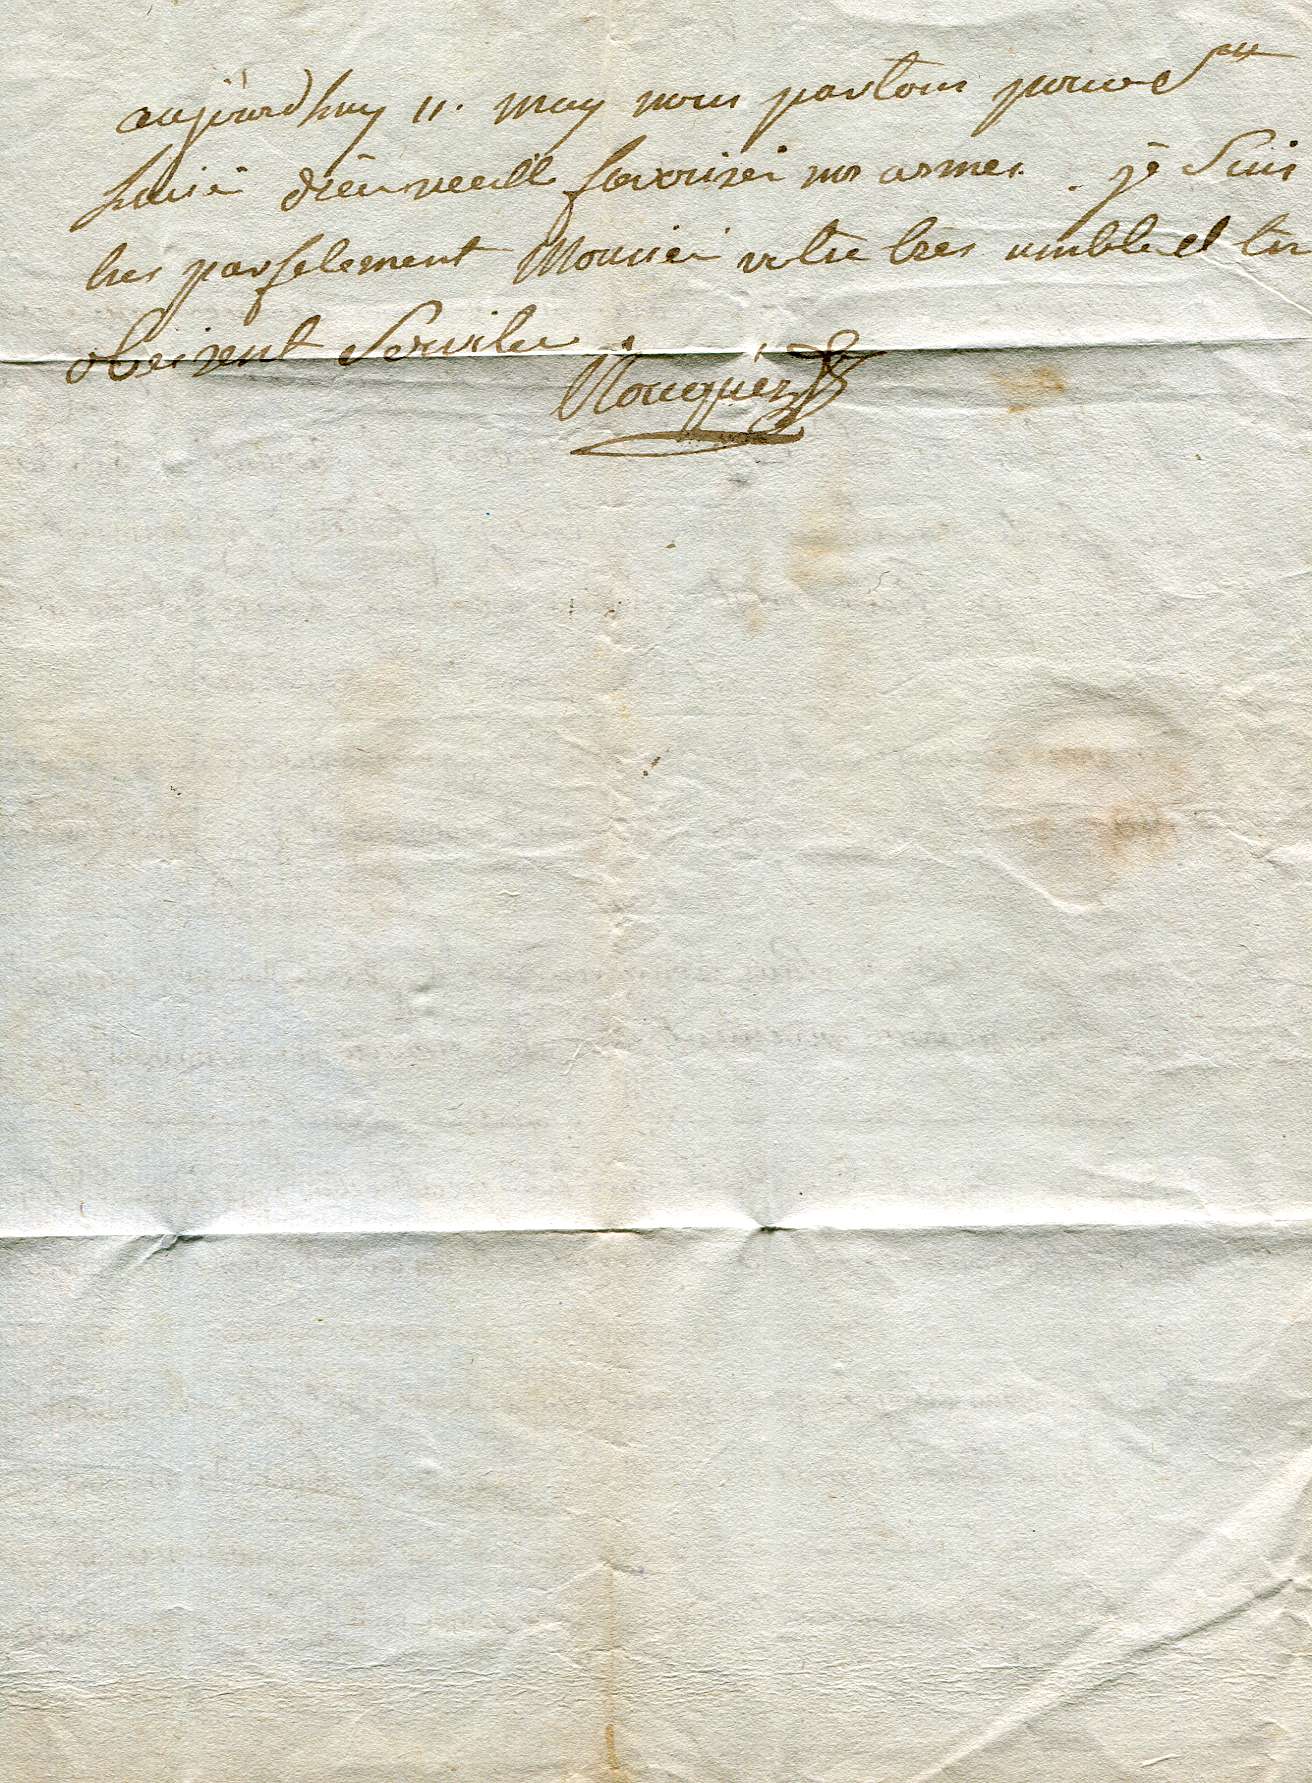 aujourdhuy 11. may nous partons pour
dieu veuille favoriser nos armes. je Suis
tres parfetement Monsieur votre tres umble et tres
obeisent Serviteur